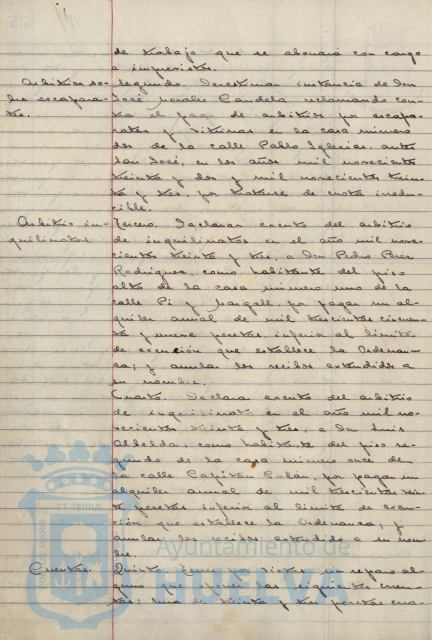 de trabajo que se abonará con cargo
a imprevistos.
Arbitrios so-
bre escapara-
tes.
Segundo. Desestimar instancia de Don
José Morales Candela reclamando con-
tra el pago de arbitrios por escapa-
rates y vitrinas en la casa número
dos de la calle Pablo Iglesias, antes
San José, en los años mil novecientos
treinta y dos y mil novecientos trein-
ta y tres, por tratarse de cuota inedu-
cible.
Arbitrio in-
quilinatos.
Tercero. Declarar exento del arbitrio
de inquilinatos en el año mil nove-
cientos treinta y tres, a Don Pedro Perez
Rodriguez, como habitante del piso
alto de la casa número uno de la
calle Pi y Margall, por pagar un al-
quiler anual de mil trescientas cincuen-
ta y nueve pesetas, inferior al límite
de exención que establece la Ordenan-
za; y anular los recibos extendidos a
su nombre.
Cuarto. Declarar exento del arbitrio
de inquilinato en el año mil no-
vecientos treinta y tres, a Don Luis
Albelda, como habitante del piso se-
gundo de la casa número once de
la calle Capitán Galán, por pagar un
alquiler anual de mil trescientas vein-
te pesetas inferior al límite de exen-
ción que establece la Ordenanza; y
anular los recibos extendidos a su nom-
bre.
Cuentas.
Quinto.
que
las siguientes cuen-
tas: Una de treinta y tres pesetas cua-
Ayuntamiento de
HUELVA